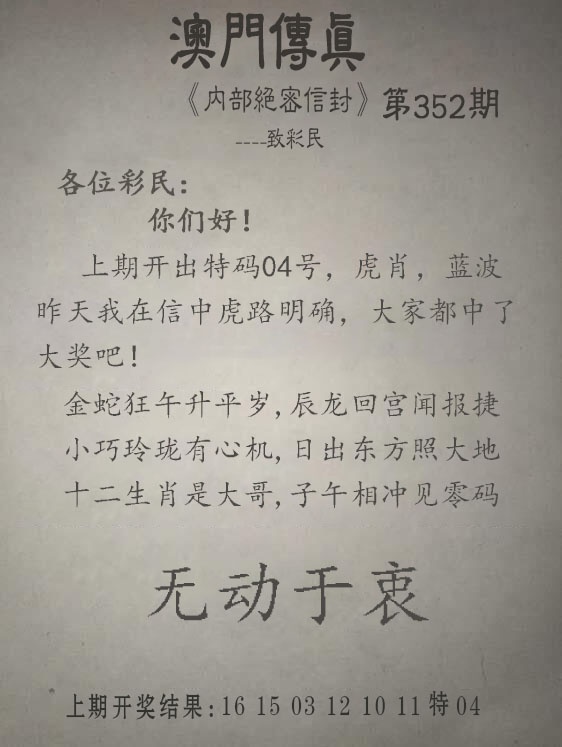 澳門傳眞
《内部絕密信封》第352期
----致彩民
各位彩民:
你们好!
上期开出特码04号，虎肖，蓝波
昨天我在信中虎路明确，大家都中了
大奖吧!
金蛇狂午升平岁,辰龙回宫闻报捷
小巧玲珑有心机,日出东方照大地
十二生肖是大哥,子午相冲见零码
无动于衷
上期开奖结果:16 15 03 12 10 11 特 04